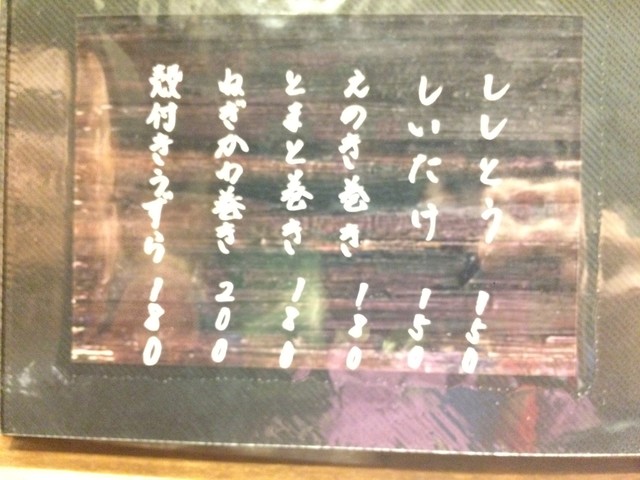 ししとう 150
しいたけ 150
えのき巻き 180
とまと巻き 180
ねぎかわ巻き 200
殻付きうずら 180